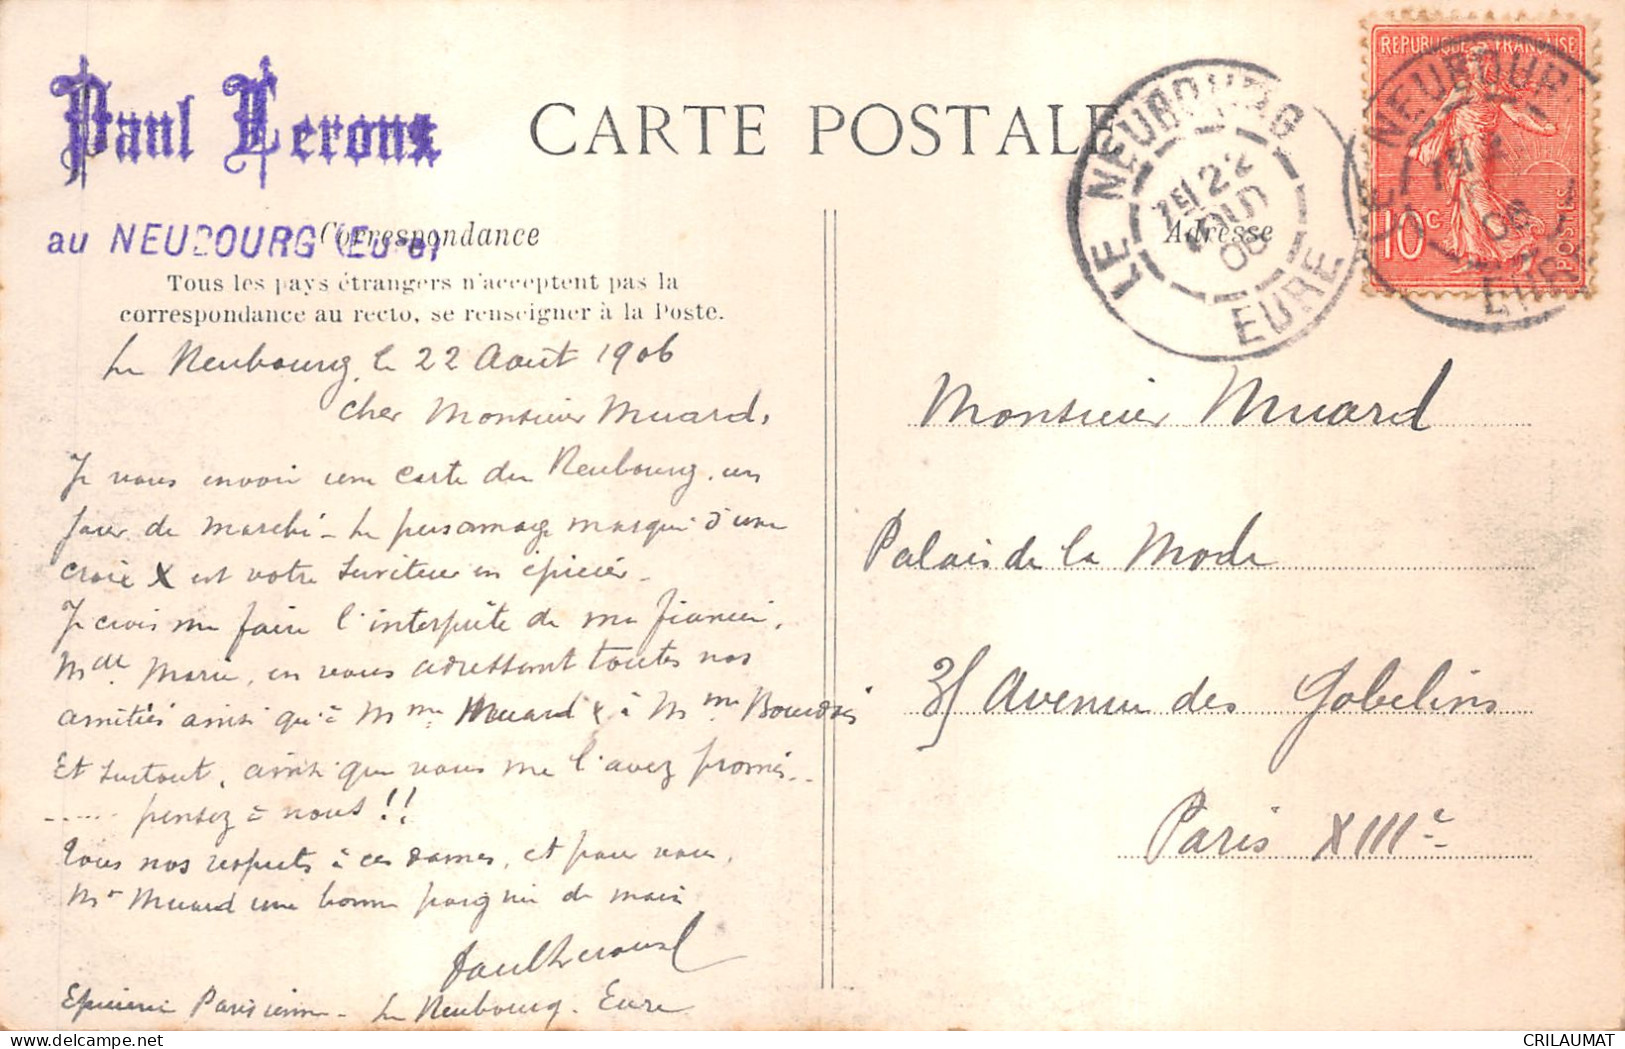 Paul Leroux
au NEUBOURG (Eure)
CARTE POSTALE
Correspondance
Tous les pays étrangers n'acceptent pas la
correspondance au recto, se renseigner à la Poste.
Le Neubourg, le 22 Aout 1906
cher Monsieur Muard,
Je vous envoie une carte du Neubourg, un
jour de marché - Le personnage marqué d'une
croix X est votre serviteur en épicier -
Je crois me faire l'interprète de ma fiancée,
Mlle Marie, en vous adressant toutes nos
amitiés ainsi qu'à Mme Muard & à Mme Bourdois
Et surtout, ainsi que vous me l'avez promis...
..... pensez à nous!!
Tous nos respects à ces dames, et pour vous,
Mr Muard une bonne poignée de main
Paul Leroux
Epicerie Parisienne - Le Neubourg - Eure
REPUBLIQUE FRANÇAISE
10c
POSTES
LE NEUBOURG
22
AOUT
06
EURE
LE NEUBOURG
06
EURE
Adresse
Monsieur Muard
Palais de la Mode
3/ Avenue des Gobelins
Paris XIIIe
CRILAUMAT